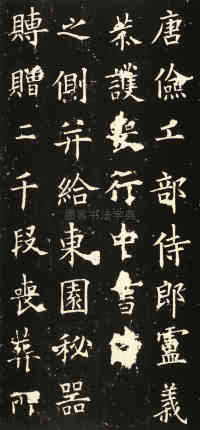 唐儉工部侍郎盧義
恭護喪行中書
之側并給東園秘器
賻贈二千段喪葬所
书法字典